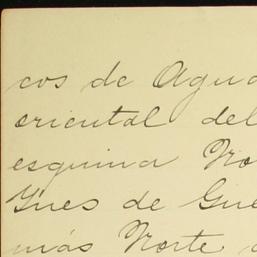 cos de Agua
oriental del
esquina No
Ynes de Gue
más Norte